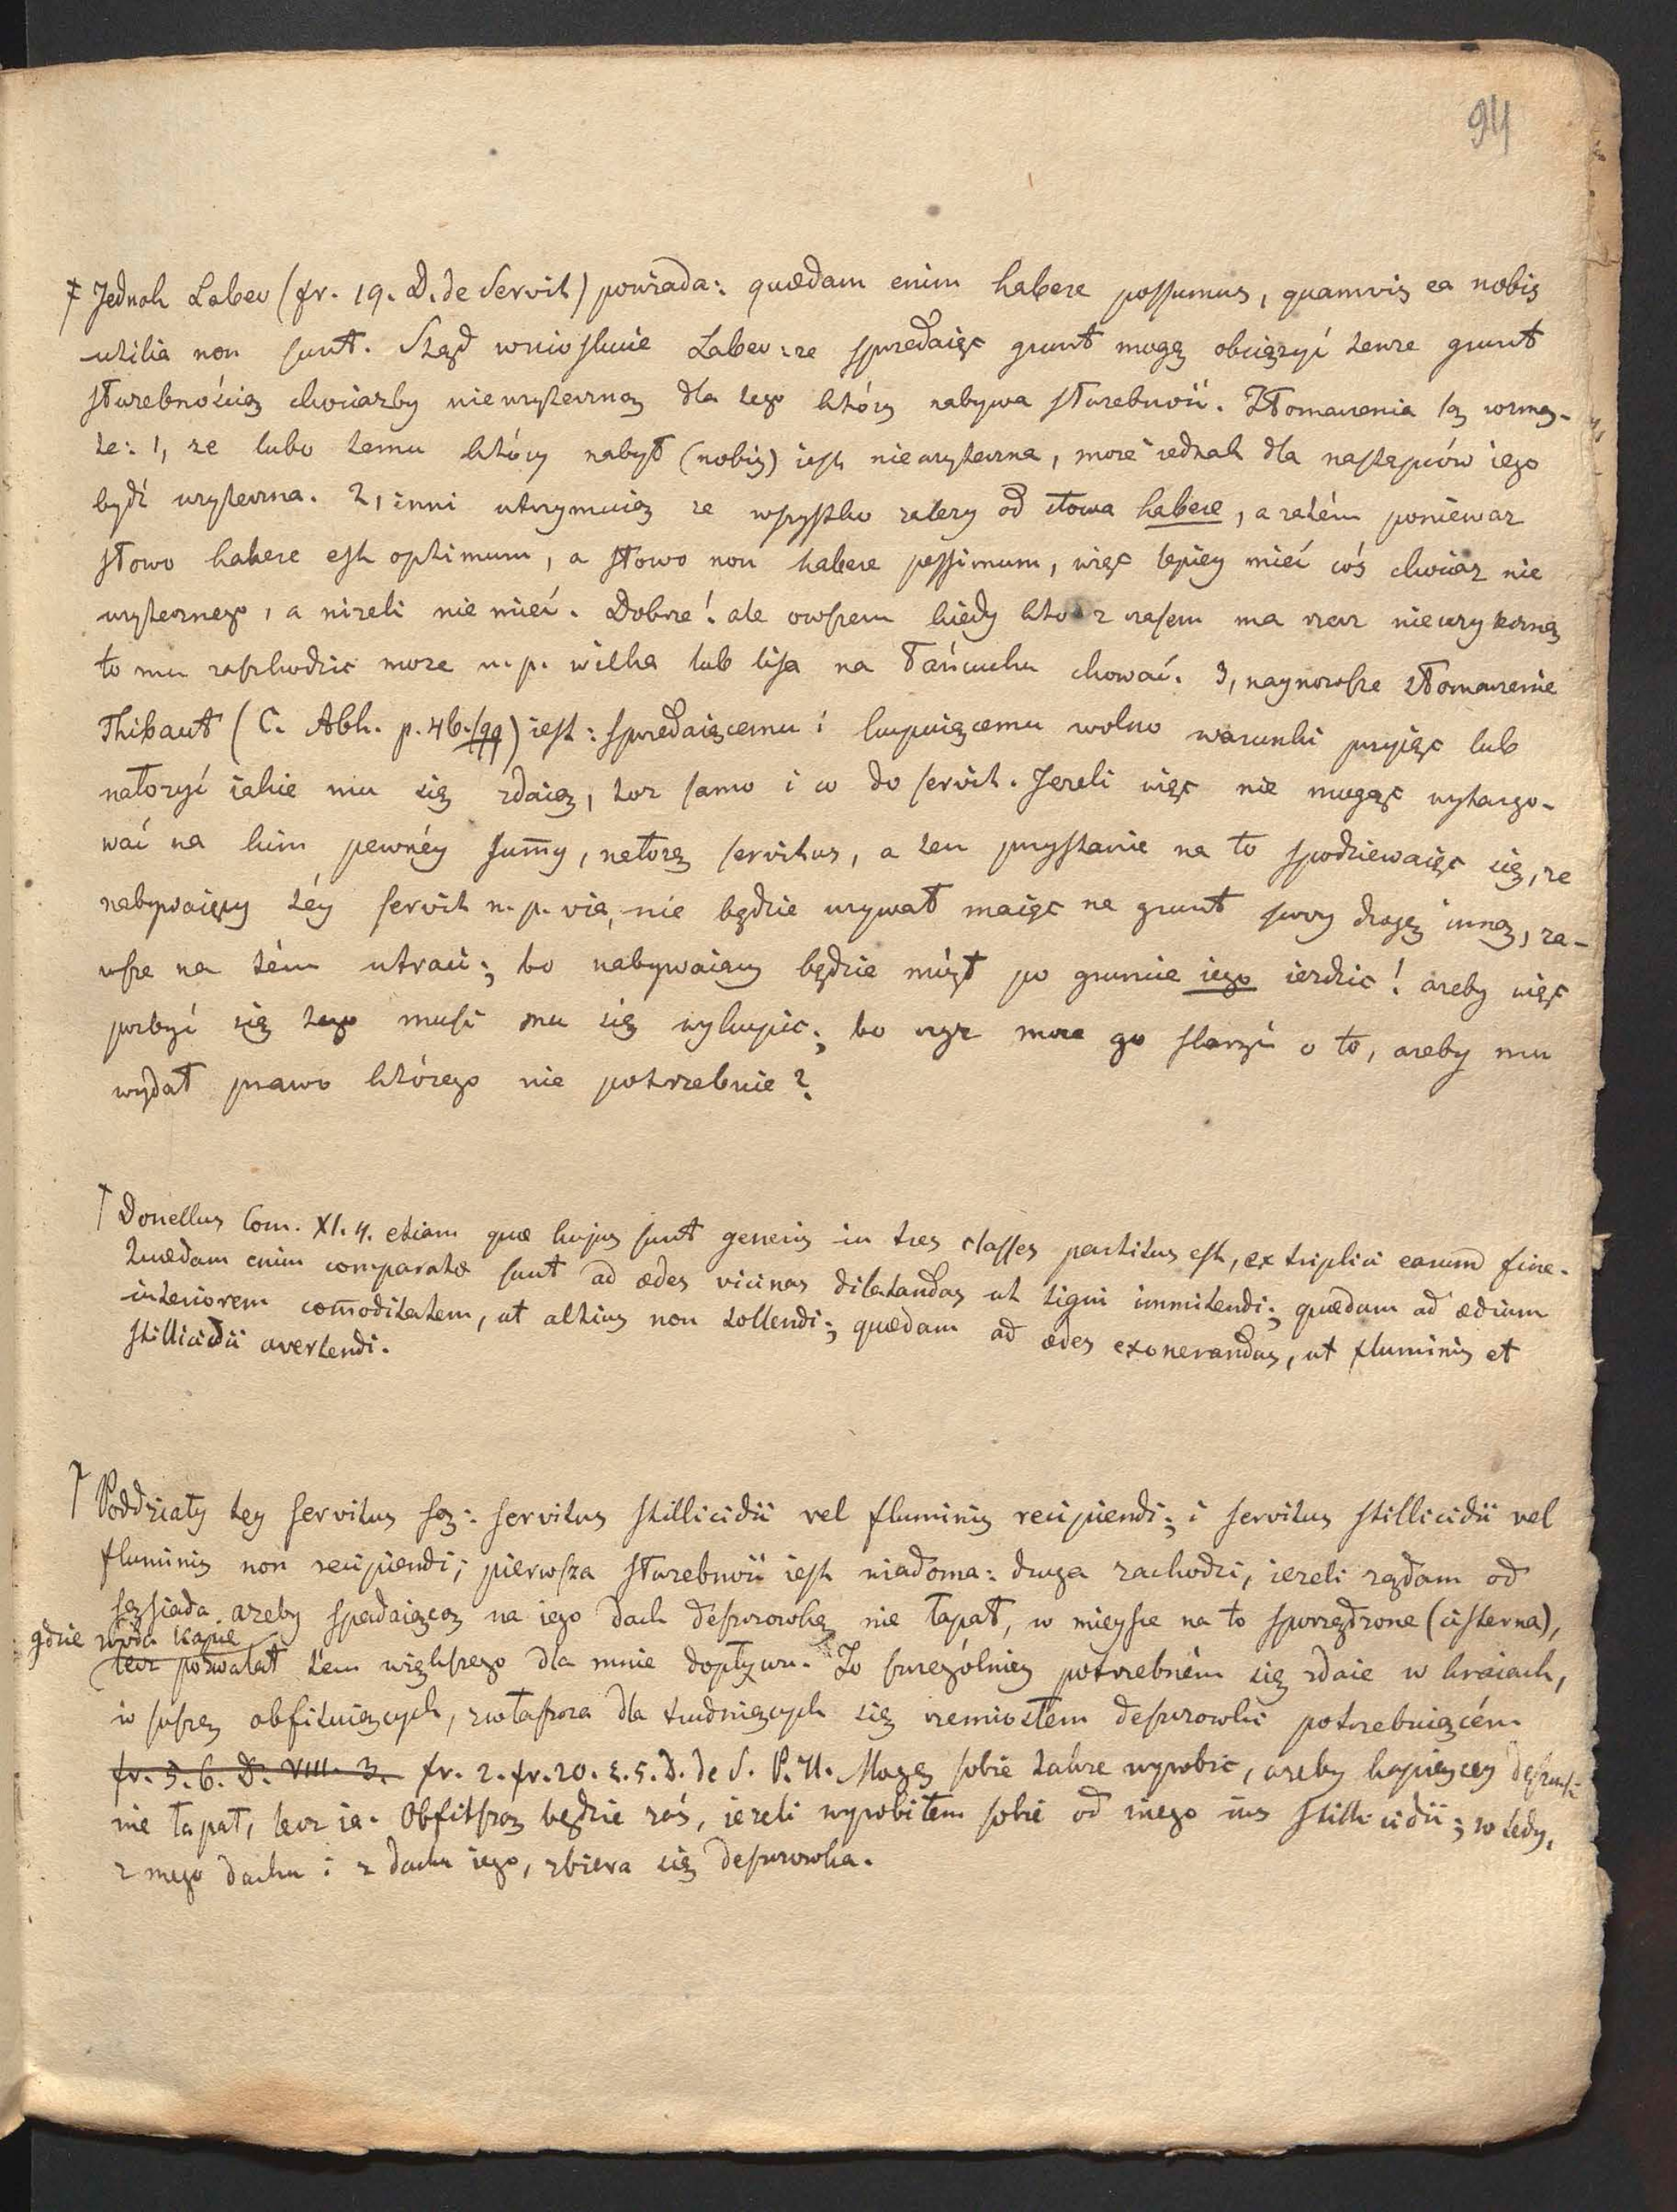 94
‡ Jednak Labeo (fr. 19. D. de Servit) powiada: quædam enim habere possumus, quamvis ea nobis
utilia non sunt. Stąd wnioskuie Labeo: ze spredaiąc grunt mogę obciązyć tenze grunt
służebnością chociazby nieuzyteczną dla tego który nabywa służebność. Tłomaczenia są rozma-
te: 1, ze lubo temu który nabył (nobis) iest nieuzyteczna, moze iednak dla następców iego
bydź uzyteczna. 2, inni utrzymuią ze wszystko zalezy od słowa habere, a zatém poniewaz
słowo habere est optimum, a słowo non habere pessimum, więc lepiey mieć coś chociaz nie
uzytecznego, a nizeli nie mieć. Dobrze! ale owszem kiedy kto czasem ma rzecz nieuzyteczną
to mu zaszkodzić moze n. p. wilka lub lisa na łańcuchu chować. 3, naynowsze tłomaczenie
Thibaut (C. Abh. p. 46. sqq) iest: spredaiącemu i kupuiącemu wolno warunki przyiąc lub
nałozyć iakie mu się zdaią, toz samo i co do servit. Jezeli więc nie mogąc wytargo-
wać na kim pewnéy sum̄y, nałozę servitus, a ten przystanie na to spodziewaiąc się, ze
nabywaiący téy servit n. p. via, nie będzie uzywał maiąc na grunt swoy drogę inną, za-
wsze na tém utraci; bo nabywaiący będzie mógł po gruncie iego iezdzic! azeby więc
pozbyć się tego musi mu się wykupic; bo czyz moze go skarzyć o to, azeby mu
wydał prawo którego nie potrzebuie?
† Donellus Com. XI. 4. etiam quæ hujus sunt generis in tres classes partitus est, ex triplici earum fine.
Quædam enim comparatæ sunt ad ædes vicinas dilatandas ut tigni immitendi; quædam ad ædium
interiorem com̄oditatem, ut altius non tollendi; quædam ad ædes exonerandas, ut fluminis et
stillicidii avertendi.
† Poddziały tey servitus są: servitus stillicidii vel fluminis recipiendi; i servitus stillicidii vel
fluminis non recipiendi; pierwsza służebność iest wiadoma: druga zachodzi, iezeli ządam od
sąsiada azeby spadaiącą na iego dach deszczowkę nie łapał, w mieysce na to sporządzone (cisterna),
gdzie woda kapie
lecz pozwalał tém większego dla mnie dopływu. To szczególniey potrzebném się zdaie w kraiach,
w suszę obfituiących, zwłaszcza dla trudniących się rzemiosłem deszczowki potrzebuiącém
fr. 5. 6. D. VIII. 3. fr. 2. fr. 20. §. 5. D. de S. P. U. Mogę sobie takze wyrobic, azeby kapiącey deszczowki
nie łapał, lecz ia. Obfitszą będzie zaś, iezeli wyrobiłem sobie od niego ius stillicidii; wtedy,
z mego dachu i z dachu iego, zbiera się deszczowka.